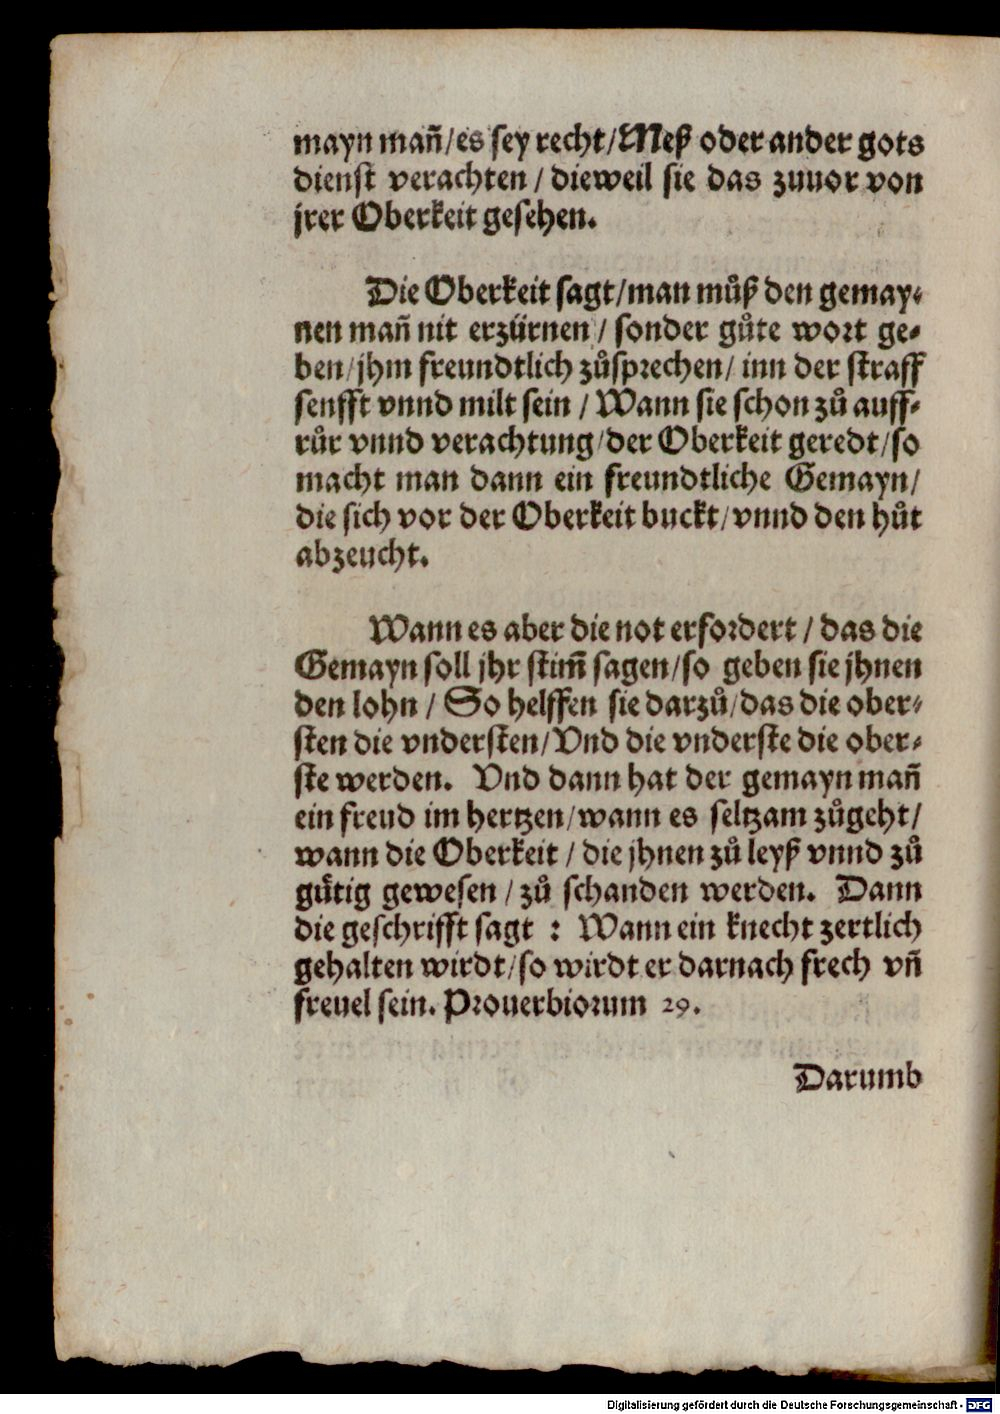 mayn mañ/es sey recht/Meß oder ander gots
dienst verachten / dieweil sie das zuuor von
jrer Oberkeit gesehen.
Die Oberkeit sagt/man můß den gemay⸗
nen mañ nit erzürnen / sonder gůte wort ge⸗
ben/jhm freundtlich zůsprechen/ inn der straff
senfft vnnd milt sein / Wann sie schon zů auff⸗
růr vnnd verachtung/der Oberkeit geredt/so
macht man dann ein freundtliche Gemayn/
die sich vor der Oberkeit buckt/vnnd den hůt
abzeucht.
Wann es aber die not erfordert / das die
Gemayn soll jhr stim̃ sagen/so geben sie jhnen
den lohn / So helffen sie darzů/das die ober⸗
sten die vndersten/Vnd die vnderste die ober⸗
ste werden. Vnd dann hat der gemayn mañ
ein freud im hertzen/wann es seltzam zůgeht/
wann die Oberkeit / die jhnen zů leyß vnnd zů
gůtig gewesen / zů schanden werden. Dann
die geschrifft sagt : Wann ein knecht zertlich
gehalten wirdt/so wirdt er darnach frech vñ
freuel sein. Prouerbiorum 29.
Darumb
Digitalisierung gefördert durch die Deutsche Forschungsgemeinschaft - DFG